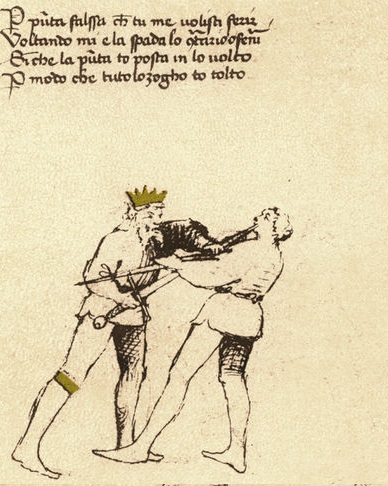 P pũta falssa ch̃ tu me volisti ferir
Voltando mi e la spada lo ꝯtrario ofeñi
Si che la pũta to posta in lo volto
P modo che tuto lo zogho to tolto